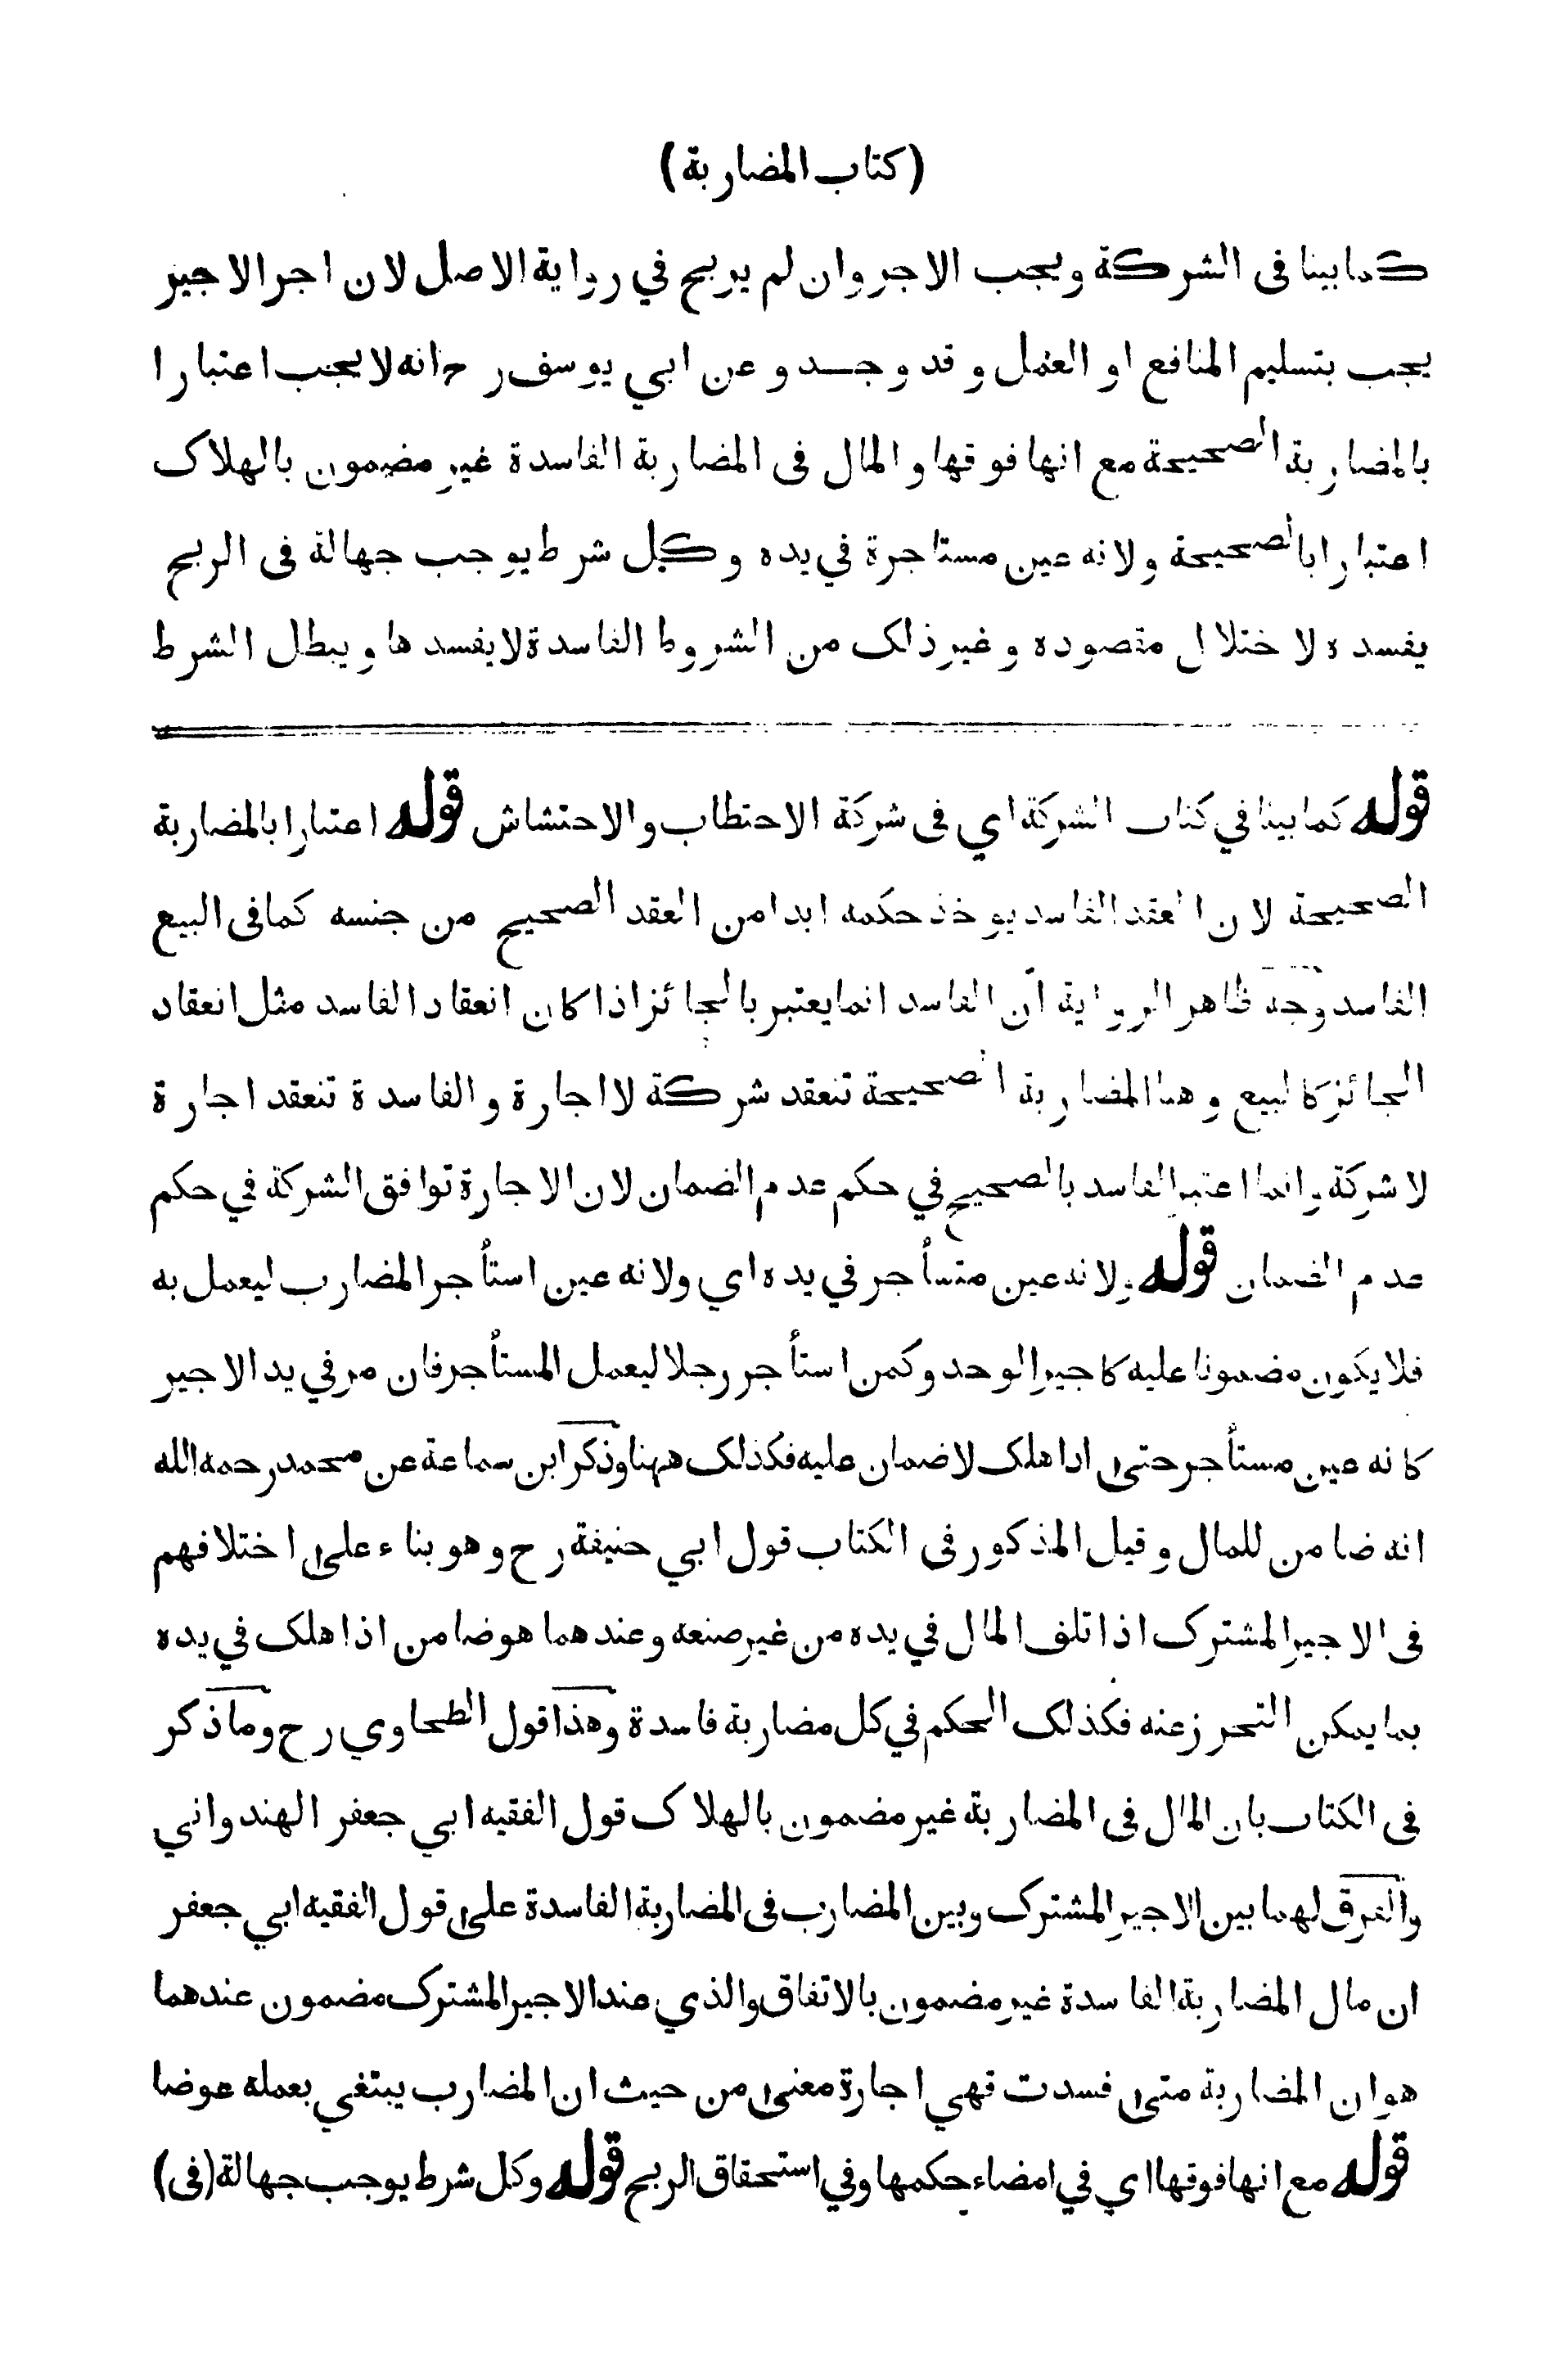 (كتاب المضاربة)
كما بينا فى الشركة ويجب الاجر وان لم يربح في رواية الاصل لان اجر الاجير
يجب بتسليم المنافع او العمل وقد وجد وعن ابي يوسف رح انه لا يجب اعتبارا
بالمضاربة الصحيحة مع انها فوقها والمال فى المضاربة الفاسدة غير مضمون بالهلاک
اعتبارا بالصحيحة ولانه عين مستاجرة في يده وكل شرط يوجب جهالة فى الربح
يفسده لاختلال مقصوده وغير ذلک من الشروط الفاسدة لا يفسدها ويبطل الشرط
قوله كما بينا في كتاب الشركة اي فى شركة الاحتطاب والاحتشاش قوله اعتبارا بالمضاربة
الصحيحة لان العقد الفاسد يوخذ حكمه ابدا من العقد الصحيح من جنسه كما فى البيع
الفاسد وجه ظاهر الرواية ان الفاسد انما يعتبر بالجائز اذا كان انعقاد الفاسد مثل انعقاد
الجائز كالبيع وهنا المضاربة الصحيحة تنعقد شركة لا اجارة والفاسدة تنعقد اجارة
لا شركة وانما اعتبر الفاسد بالصحيح في حكم عدم الضمان لان الاجارة توافق الشركة في حكم
عدم الضمان قوله ولانه عين متسأجر في يده اي ولانه عين استأجر المضارب ليعمل به
فلا يكون مضمونا عليه كاجير الوحد وكمن استأجر رجلا ليعمل المستأجر فان مر في يد الاجير
كانه عين مستأجر حتى اذا هلک لا ضمان عليه فكذلک ههنا وذكر ابن سماعة عن محمد رحمه الله
انه ضامن للمال وقيل المذكور فى الكتاب قول ابي حنيفة رح وهو بناء على اختلافهم
فى الاجير المشترک اذا تلف المال في يده من غير صنعه وعندهما هو ضامن اذا هلک في يده
بما يمكن التحرز عنه فكذلک الحكم في كل مضاربة فاسدة وهذا قول الطحاوي رح وما ذكر
فى الكتاب بان المال فى المضاربة غير مضمون بالهلاک قول الفقيه ابي جعفر الهندواني
والفرق لهما بين الاجير المشترک وبين المضارب فى المضاربة الفاسدة على قول الفقيه ابي جعفر
ان مال المضاربة الفاسدة غير مضمون بالاتفاق والذي عند الاجير المشترک مضمون عندهما
هو ان المضاربة متى فسدت فهي اجارة معنى من حيث ان المضارب يبتغي بعمله عوضا
قوله مع انها فوقها اي في امضاء حكمها وفي استحقاق الربح قوله وكل شرط يوجب جهالة (فى)